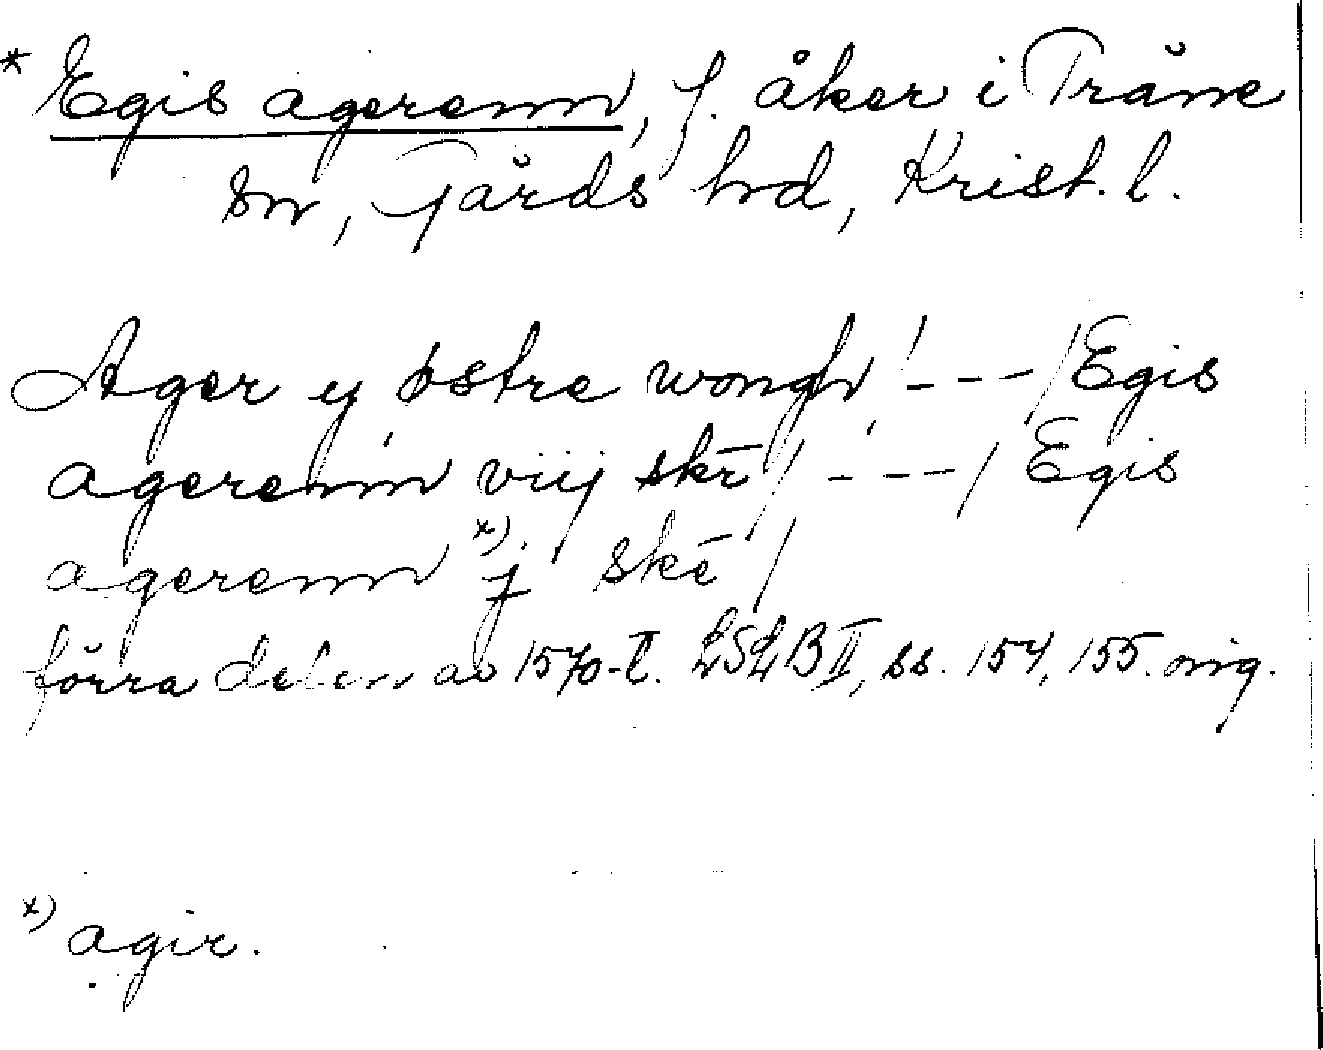 * Egis agerenn, f. åker i Träne
sn, Gärds hd, Krist. l.
Ager y østre wongh / - - - / Egis
agerenn viij skē / - - - / Egis
agerenn x) j skē /
förra delen av 1570-t. LSLB II, ss. 154, 155. orig.
x) agir.